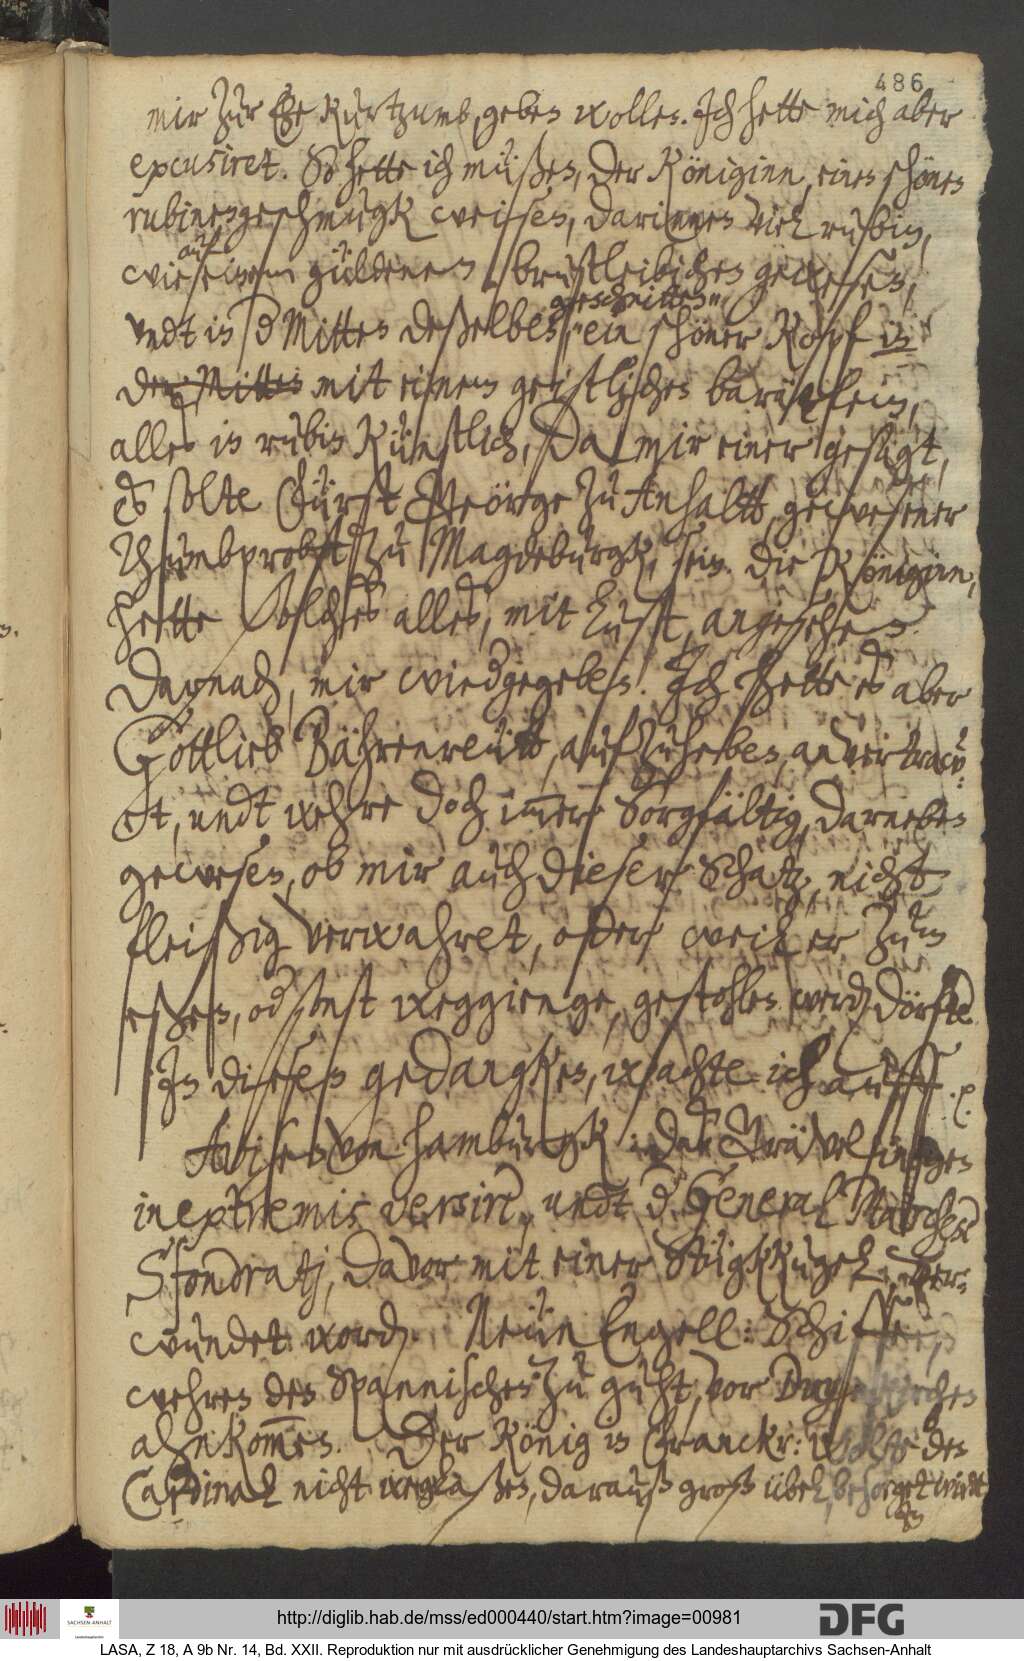 486
mir zur Ehe kurtzumb, geben wollen. Ich hette mich aber
excusiret. So hette ich müßen, der Königinn, einen schönen
rubinengeschmugk weisen, darinnen viel rubin,
auf
wie einem güldenen brustleibichen gewesen,
geschnitten
vndt in d Mitten deßelben, ein schöner Kopf in
der Mitten mit einem geistlichen baretlein,
alles in rubin künstlich, Da mir einer gesagt,
es solte Fürst Geörge zu Anhaltt, gewesener
Thumbprobst zu Magdeburgk, sein. Die Königinn,
hette solches alles, mit lust, angesehen.
Darnach, mir wied gegeben. Ich hette es aber
Gottlieb Bährenreutt, aufzuheben, anvertrawt,
undt wehre doch im̄er sorgfältig, darneben
gewesen, ob mir auch dieser Schatz, nicht
fleißig verwahret, oder weil er zum
eßen, od sonst weggienge, gestohlen werden dörfte
In diesen gedangken, wachte ich auff.
Avisen von Hamburgk: das Grävelingen
in extremis versire, undt d General
Sfondratj, davor mit einer Stügkkugel, ver-
wundet worden. Neün Engell: Schiffe,
wehren den Spannischen zu guht, vor Duynkirchen
ahnkom̄en. Der König in Franckr: wollte den
Cardinal nicht weglaßen, darauß groß übel, besorget wirdt
http://diglib.hab.de/mss/ed000440/start.htm?image=00981
SACHSEN-ANHALT
Landeshauptarchiv
DFG
LASA, Z 18, A 9b Nr. 14, Bd. XXII. Reproduktion nur mit ausdrücklicher Genehmigung des Landeshauptarchivs Sachsen-Anhalt